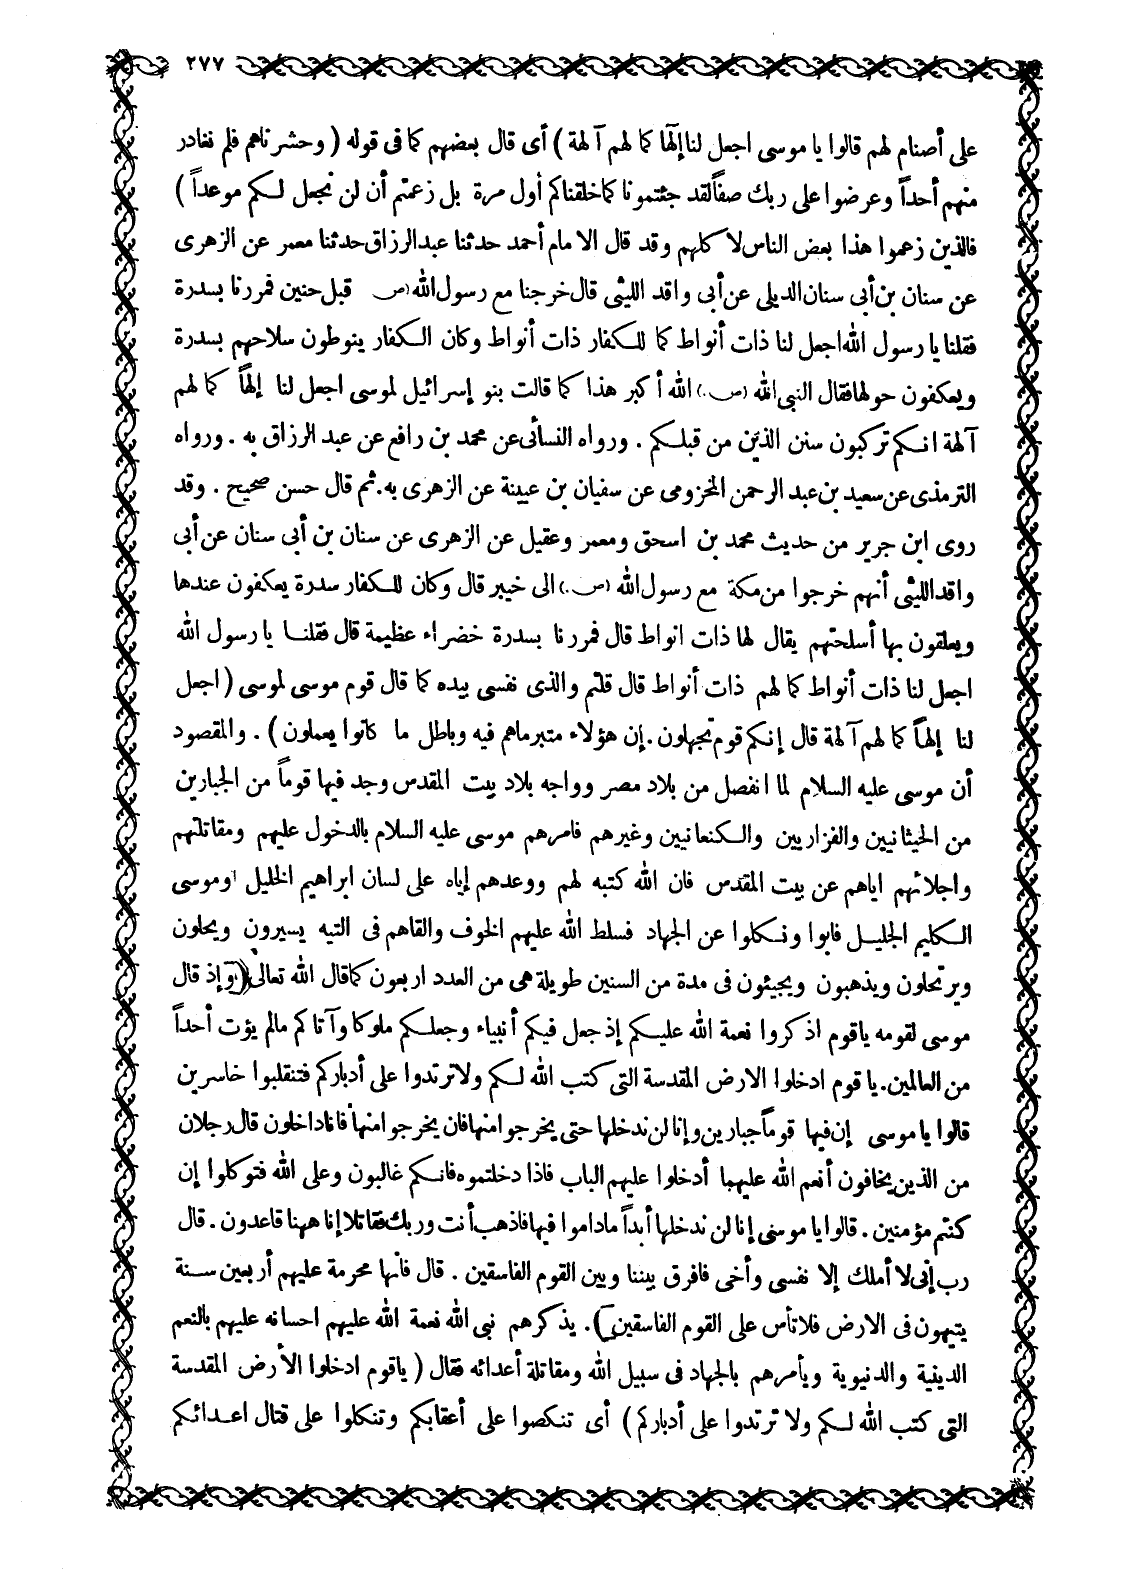 ٢٧٧
على أصنام لهم قالوا يا موسى اجعل لنا إلٓهاً كما لهم آلهة ) أى قال بعضهم كما فى قوله ( وحشرناهم فلم نغادر
منهم أحداً وعرضوا على ربك صفاً لقد جئتمونا كما خلقناكم أول مرة بل زعمتم أن لن نجعل لكم موعداً )
فالذين زعموا هذا بعض الناس لا كلهم وقد قال الامام أحمد حدثنا عبدالرزاق حدثنا معمر عن الزهرى
عن سنان بن أبى سنان الديلى عن أبى واقد الليثى قال خرجنا مع رسول الله (ص) قبل حنين فمررنا بسدرة
فقلنا يا رسول الله اجعل لنا ذات أنواط كما للكفار ذات أنواط وكان الكفار ينوطون سلاحهم بسدرة
ويعكفون حولها فقال النبى الله (ص.) الله أكبر هذا كما قالت بنو إسرائيل لموسى اجعل لنا إلهاً كما لهم
آلهة انكم تركبون سنن الذين من قبلكم . ورواه النسأئى عن محمد بن رافع عن عبد الرزاق به . ورواه
الترمذى عن سعيد بن عبد الرحمن المخزومى عن سفيان بن عيينة عن الزهرى به. ثم قال حسن صحيح . وقد
روى ابن جرير من حديث محمد بن اسحق ومعمر وعقيل عن الزهرى عن سنان بن أبى سنان عن أبى
واقد الليثى أنهم خرجوا من مكة مع رسول الله (ص.) الى خيبر قال وكان للكفار سدرة يعكفون عندها
ويعلقون بها أسلحتهم يقال لها ذات انواط قال فمررنا بسدرة خضراء عظيمة قال فقلنا يا رسول الله
اجعل لنا ذات أنواط كما لهم ذات أنواط قال قلتم والذى نفسى بيده كما قال قوم موسى لموسى ( اجعل
لنا إلهاً كما لهم آلهة قال إنكم قوم تجهلون . إن هؤلاء متبر ماهم فيه وباطل ما كانوا يعملون ) . والمقصود
أن موسى عليه السلام لما انفصل من بلاد مصر وواجه بلاد بيت المقدس وجد فيها قوماً من الجبارين
من الحيثانيين والفزاريين والكنعانيين وغيرهم فامرهم موسى عليه السلام بالدخول عليهم ومقاتلتهم
واجلائهم اياهم عن بيت المقدس فان الله كتبه لهم ووعدهم إياه على لسان ابراهيم الخليل اوموسى
الكليم الجليل فابوا ونكلوا عن الجهاد فسلط الله عليهم الخوف والقاهم فى التيه يسيرون ويحلون
ويرتحلون ويذهبون ويجيئون فى مدة من السنين طويلة هى من العدد اربعون كما قال الله تعالى ( وإذ قال
موسى لقومه يا قوم اذكروا نعمة الله عليكم إذ جعل فيكم أنبياء وجعلكم ملوكا وآتاكم مالم يؤت أحداً
من العالمين. يا قوم ادخلوا الارض المقدسة التى كتب الله لكم ولا ترتدوا على أدباركم فتنقلبوا خاسرين
قالوا يا موسى إن فيها قوماً جبارين وإنا لن ندخلها حتى يخرجوا منها فان يخرجوا منها فانا داخلون قال رجلان
من الذين يخافون أنعم الله عليهما أدخلوا عليهم الباب فاذا دخلتموه فانكم غالبون وعلى الله فتوكلوا إن
كنتم مؤمنين . قالوا يا موسى إنا لن ندخلها أبداً ماداموا فيها فاذهب أنت وربك فقاتلا إنا ههنا قاعدون . قال
رب إنى لا أملك إلا نفسى وأخى فافرق بيننا وبين القوم الفاسقين . قال فانها محرمة عليهم أربعين سنة
يتيهون فى الارض فلا تأس على القوم الفاسقين ). يذكرهم نبى الله نعمة الله عليهم احسانه عليهم بالنعم
الدينية والدنيوية ويأمرهم بالجهاد فى سبيل الله ومقاتلة أعدائه فقال ( يا قوم ادخلوا الأرض المقدسة
التى كتب الله لكم ولا ترتدوا على أدباركم ) أى تنكصوا على أعقابكم وتنكلوا على قتال اعدائكم